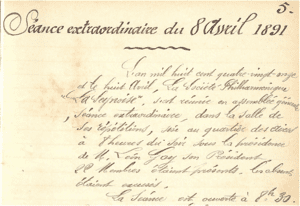 5.
Séance extraordinaire du 8 Avril 1891
L'an mil huit cent quatre-vingt-onze
et le huit Avril, La Société Philharmonique
La Seynoise, s'est réunie en assemblée générale
Séance extraordinaire, dans la Salle de
Ses répétitions, sise au quartier des
à heures du Soir sous la présidence
de M. Son Président
28 Membres étaient présents.
étaient excusés.
La Séance est ouverte à 8h 30.